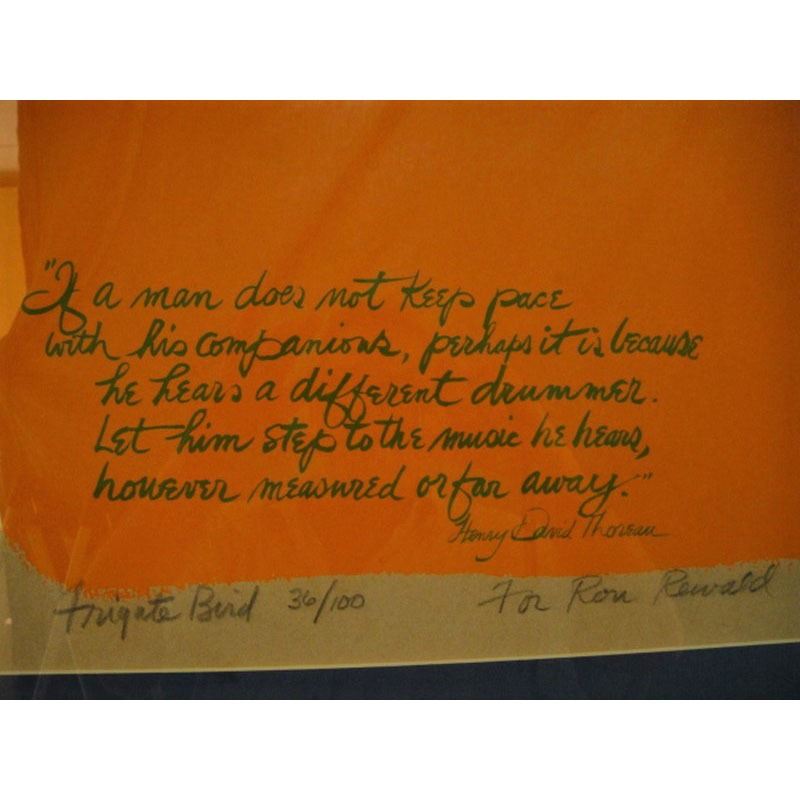 "If a man does not keep pace
with his companions, perhaps it is because
he hears a different drummer.
Let him step to the music he hears,
however measured or far away."
Henry David Thoreau
Frigate Bird 36/100 For Ron Rewald